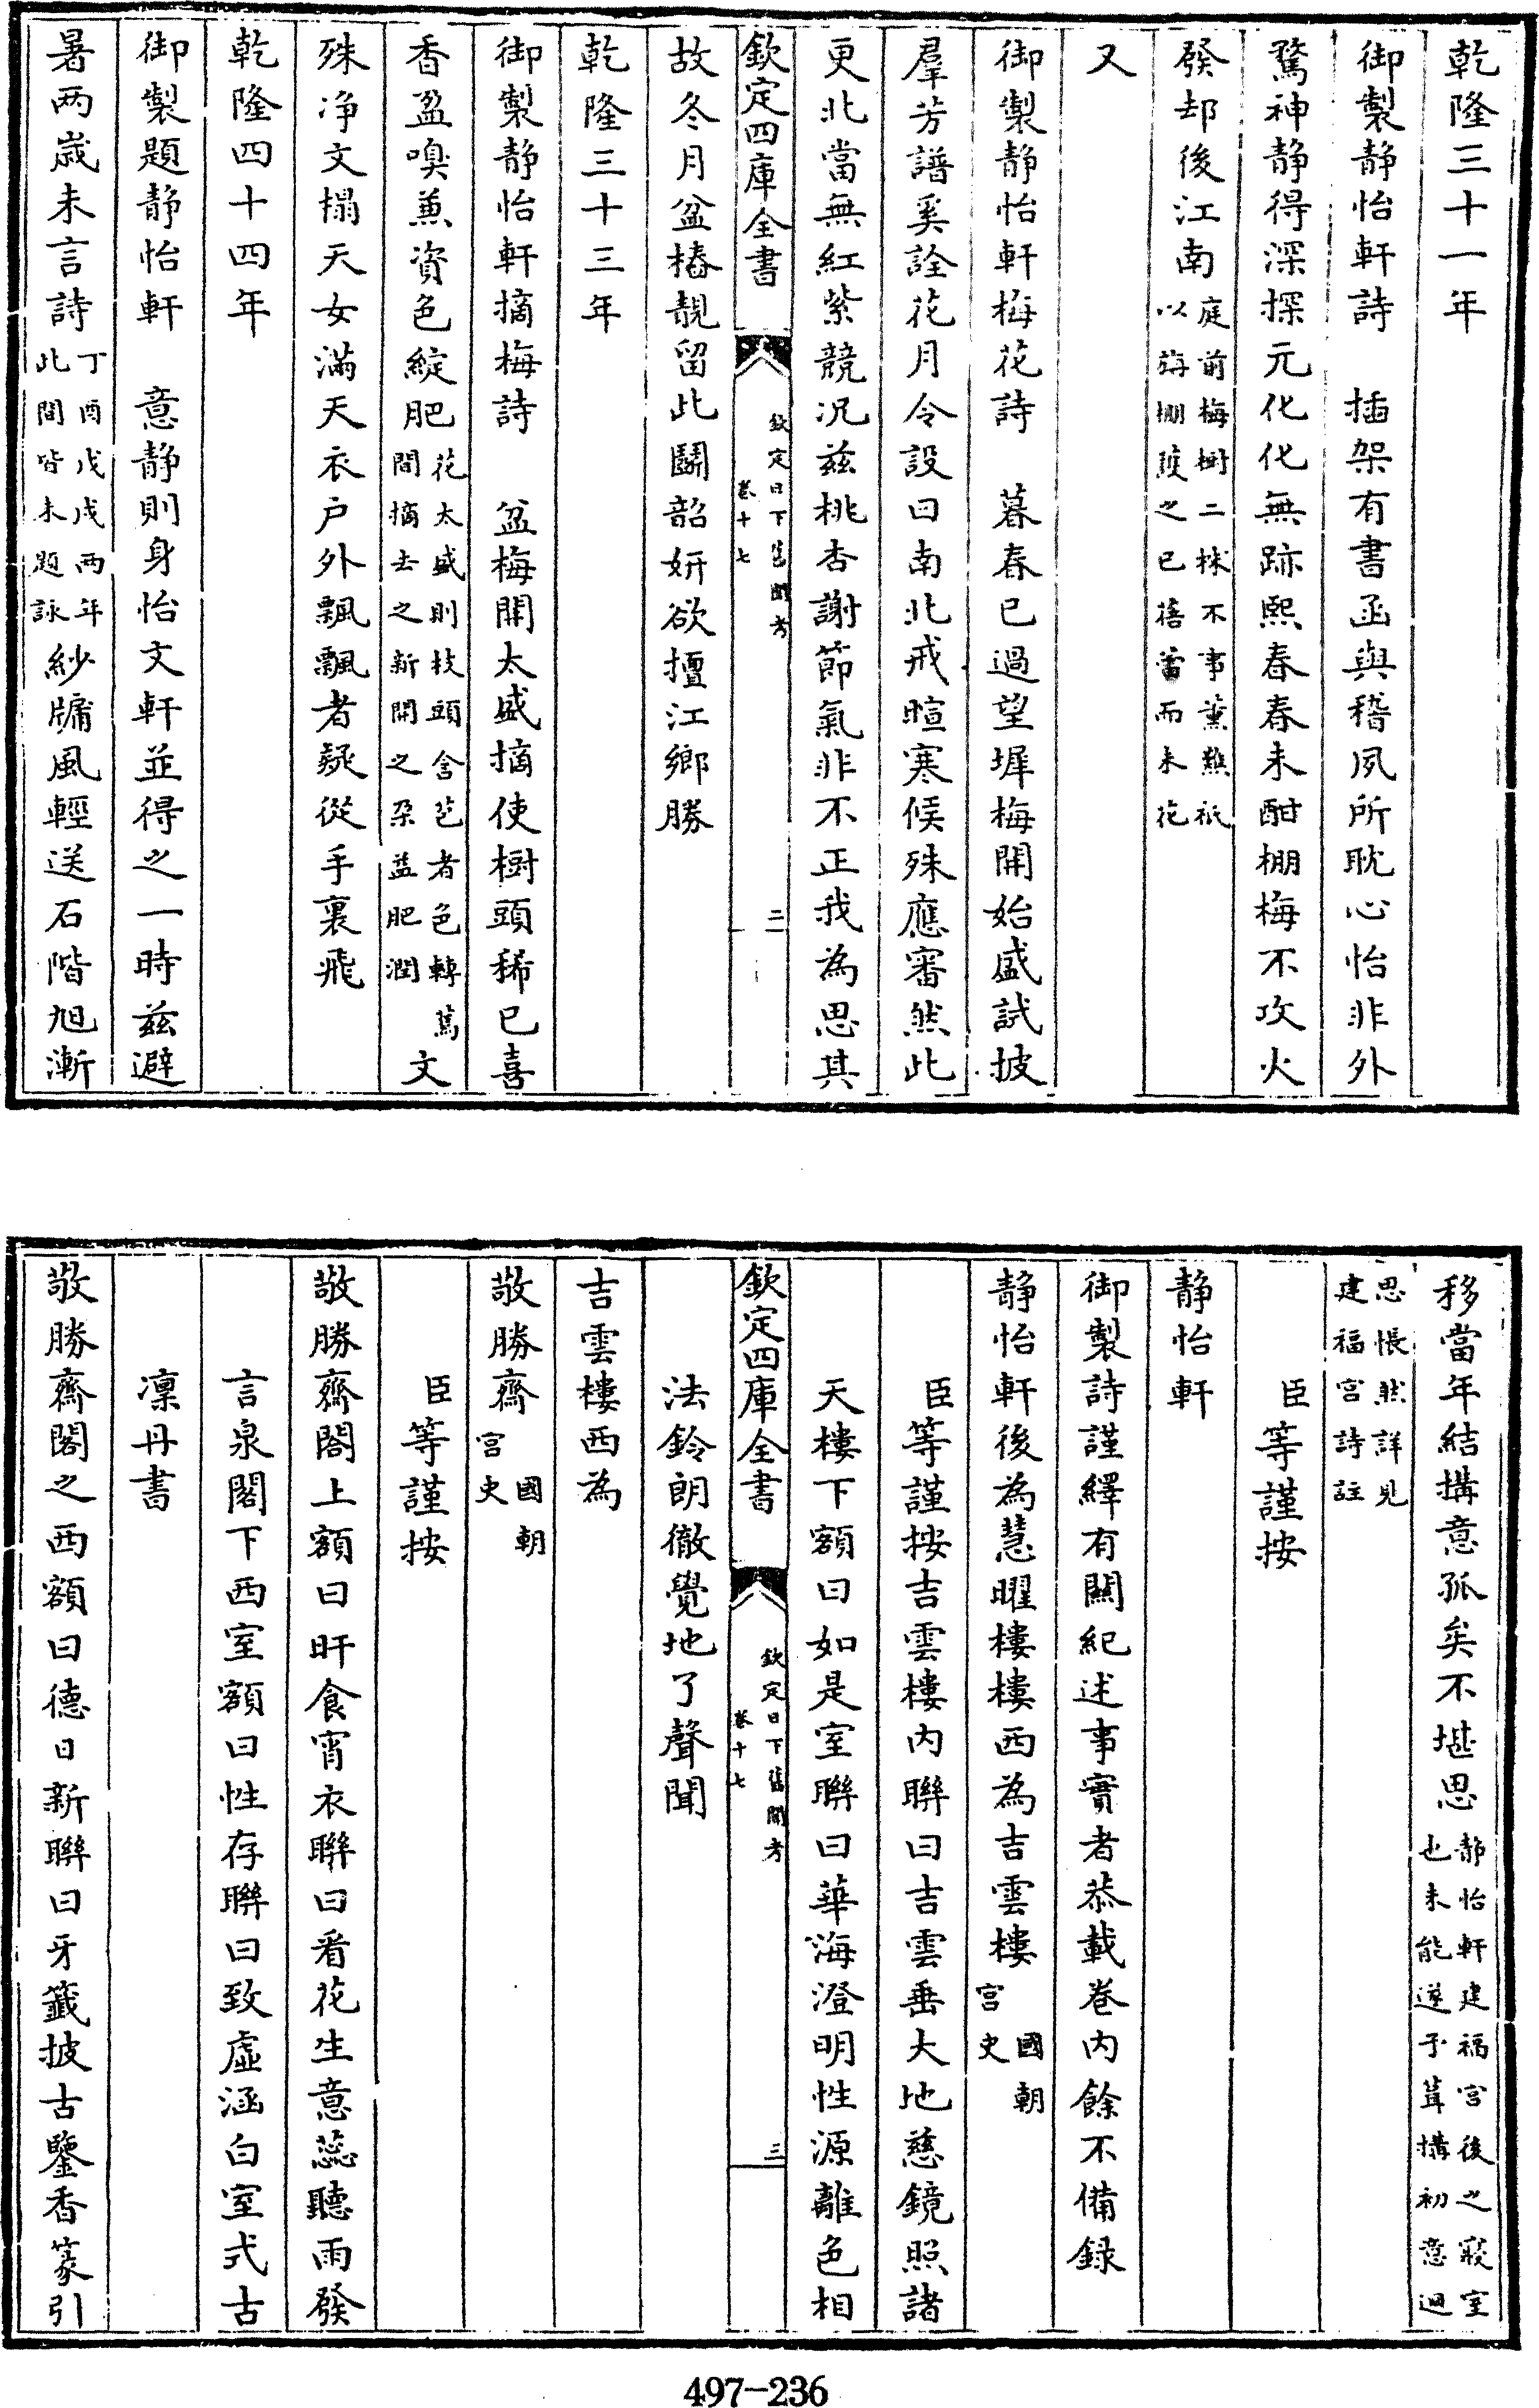 乾隆三十一年
御製静怡軒詩　插架有書函與稽夙所耽心怡非外
騖神静得深探元化化無跡熙春春未酣棚梅不攻火
發却後江南庭前梅樹二株不事薰爇祇以海棚護之已蓓蕾而未花
又
御製静怡軒梅花詩　暮春已過望墀梅開始盛試披
羣芳譜奚詮花月令設曰南北戒暄寒候殊應審然此
更北當無紅紫競况兹桃杏謝節氣非不正我為思其
欽定四庫全書
欽定日下舊聞考
卷十七
二
故冬月盆樁靚留此鬬韶妍欲擅江鄉勝
乾隆三十三年
御製静怡軒摘梅詩　盆梅開太盛摘使樹頭稀已喜
香盈嗅兼資色綻肥花太盛則枝頭含苞者色轉蔫間摘去之新開之朶益肥潤文
殊净文榻天女滿天衣户外飄飄者疑從手裏飛
乾隆四十四年
御製題静怡軒　意静則身怡文軒並得之一時兹避
暑两歲未言詩丁酉戊戌两年此間皆未題詠紗牖風輕送石階旭漸
移當年結搆意孤矣不堪思静怡軒建福宫後之寢室也未能遂予葺搆初意迴
思悵然詳見建福宫詩註
臣等謹按
静怡軒
御製詩謹繹有關紀述事實者恭載卷内餘不備録
静怡軒後為慧曜樓樓西為吉雲樓國朝宫史
臣等謹按吉雲樓内聯曰吉雲垂大地慈鏡照諸
天樓下額曰如是室聯曰華海澄明性源離色相
欽定四庫全書
欽定日下舊聞考
卷十七
三
法鈴朗徹覺地了聲聞
吉雲樓西為
敬勝齋國朝宫史
臣等謹按
敬勝齋閣上額曰旰食宵衣聯曰看花生意蕊聽雨發
言泉閣下西室額曰性存聯曰致虚涵白室式古
凜丹書
敬勝齋閣之西額曰德日新聯曰牙籤披古鑒香篆引
497-236